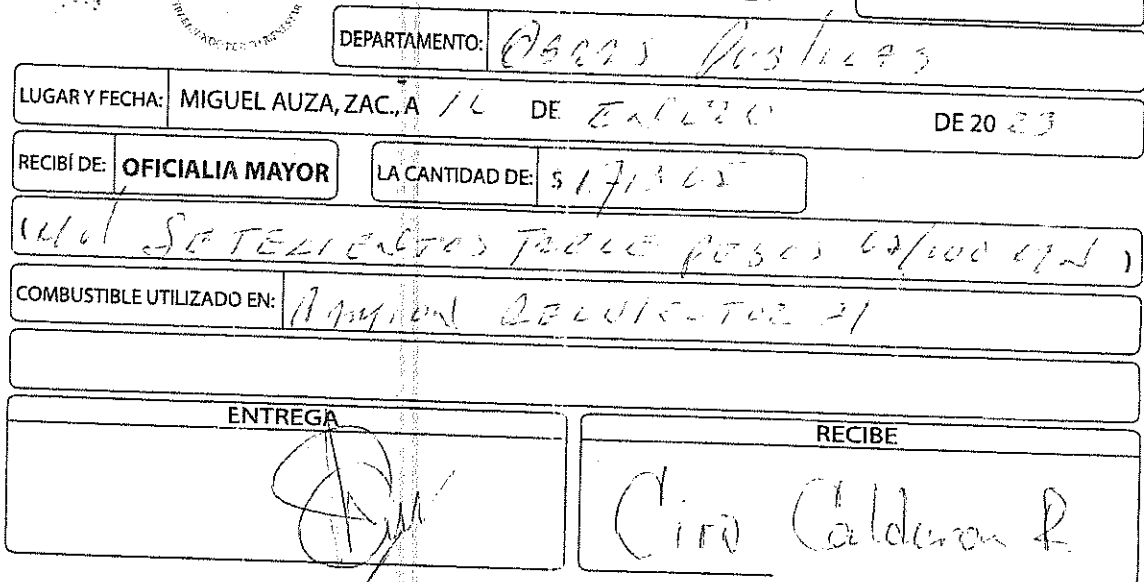 DEPARTAMENTO: Obras Publicas
LUGAR Y FECHA: MIGUEL AUZA, ZAC., A DE ENERO DE 20 23
RECIBÍ DE: OFICIALIA MAYOR LA CANTIDAD DE: $
SETECIENTOS TRECE PESOS /100
COMBUSTIBLE UTILIZADO EN:
ENTREGA RECIBE
Ciro Calderon R